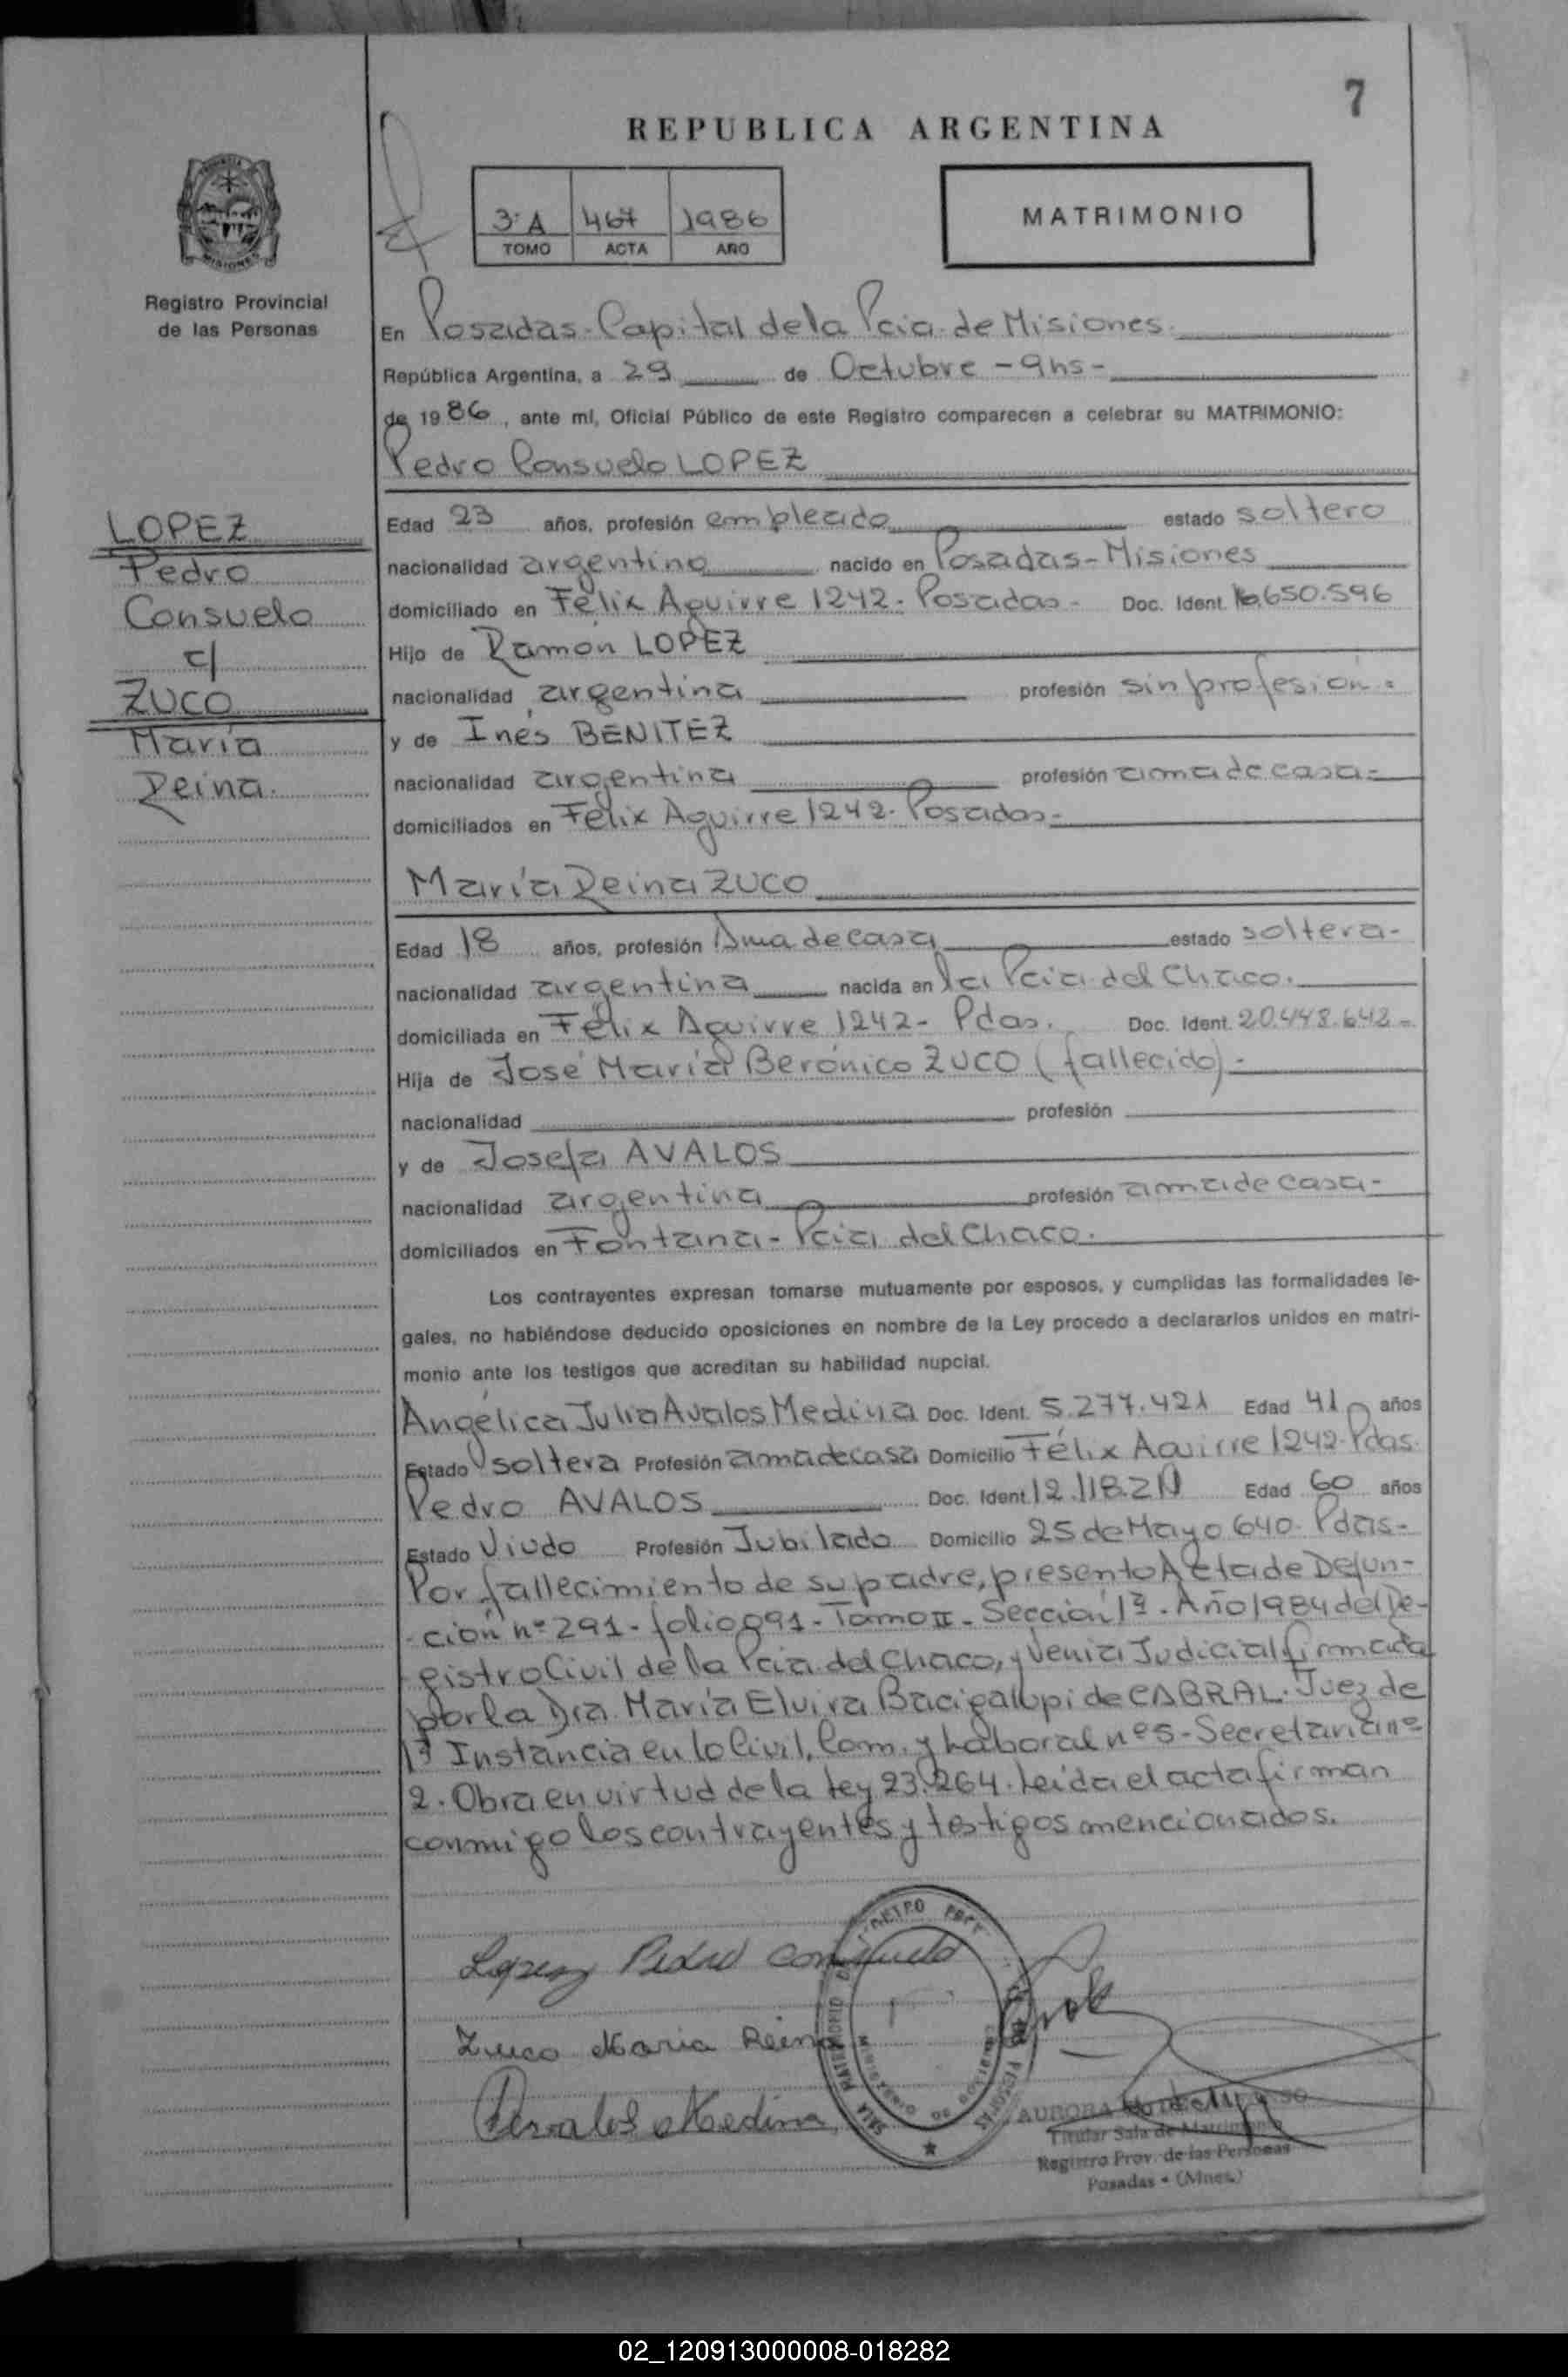 7
REPUBLICA ARGENTINA
3ª A 467 1986
TOMO ACTA AÑO
MATRIMONIO
Registro Provincial
de las Personas
En Posadas-Capital de la Pcia. de Misiones.
República Argentina, a 29 de Octubre - 9hs-
de 1986, ante mí, Oficial Público de este Registro comparecen a celebrar su MATRIMONIO:
Pedro Consuelo LOPEZ
LOPEZ
Pedro
Consuelo
c/
ZUCO
María
Reina.
Edad 23 años, profesión empleado estado soltero
nacionalidad argentino nacido en Posadas-Misiones
domiciliado en Félix Aguirre 1242- Posadas- Doc. Ident. 16.650.596
Hijo de Ramón LOPEZ
nacionalidad argentina profesión sin profesión-
y de Inés BENITEZ
nacionalidad argentina profesión ama de casa-
domiciliados en Félix Aguirre 1242- Posadas-
María Reina ZUCO
Edad 18 años, profesión Ama de casa estado soltera-
nacionalidad argentina nacida en la Pcia. del Chaco.
domiciliada en Félix Aguirre 1242- Pdas. Doc. Ident. 20.448.642-
Hija de José María Berónico ZUCO (fallecido)-
nacionalidad profesión
y de Josefa AVALOS
nacionalidad argentina profesión ama de casa-
domiciliados en Fontana- Pcia. del Chaco.
Los contrayentes expresan tomarse mutuamente por esposos, y cumplidas las formalidades le-
gales, no habiéndose deducido oposiciones en nombre de la Ley procedo a declararlos unidos en matri-
monio ante los testigos que acreditan su habilidad nupcial.
Angélica Julia Avalos Medina Doc. Ident. 5.277.421 Edad 41 años
Estado soltera Profesión ama de casa Domicilio Félix Aguirre 1242-Pdas.
Pedro AVALOS Doc. Ident. Edad 60 años
Estado Viudo Profesión Jubilado Domicilio 25 de Mayo 640- Pdas-
Por fallecimiento de su padre, presento Acta de Defun-
ción nº 291- folio 091- Tomo II- Sección 1ª- Año 1984 del Re-
gistro Civil de la Pcia. del Chaco, y Venia Judicial firmada
por la Dra. María Elvira Bacigalupi de CABRAL- Juez de
1ª Instancia en lo Civil, Com. y Laboral nº 5- Secretaría nº
2. Obra en virtud de la Ley 23.264. Leída el acta firman
conmigo los contrayentes y testigos mencionados.
Lopez Pedro Consuelo
Zuco Maria Reina
Avalos Medina
AURORA
Titular Sala de Matrimonio
Registro Prov. de las Personas
Posadas - (Mnes.)
02_120913000008-018282